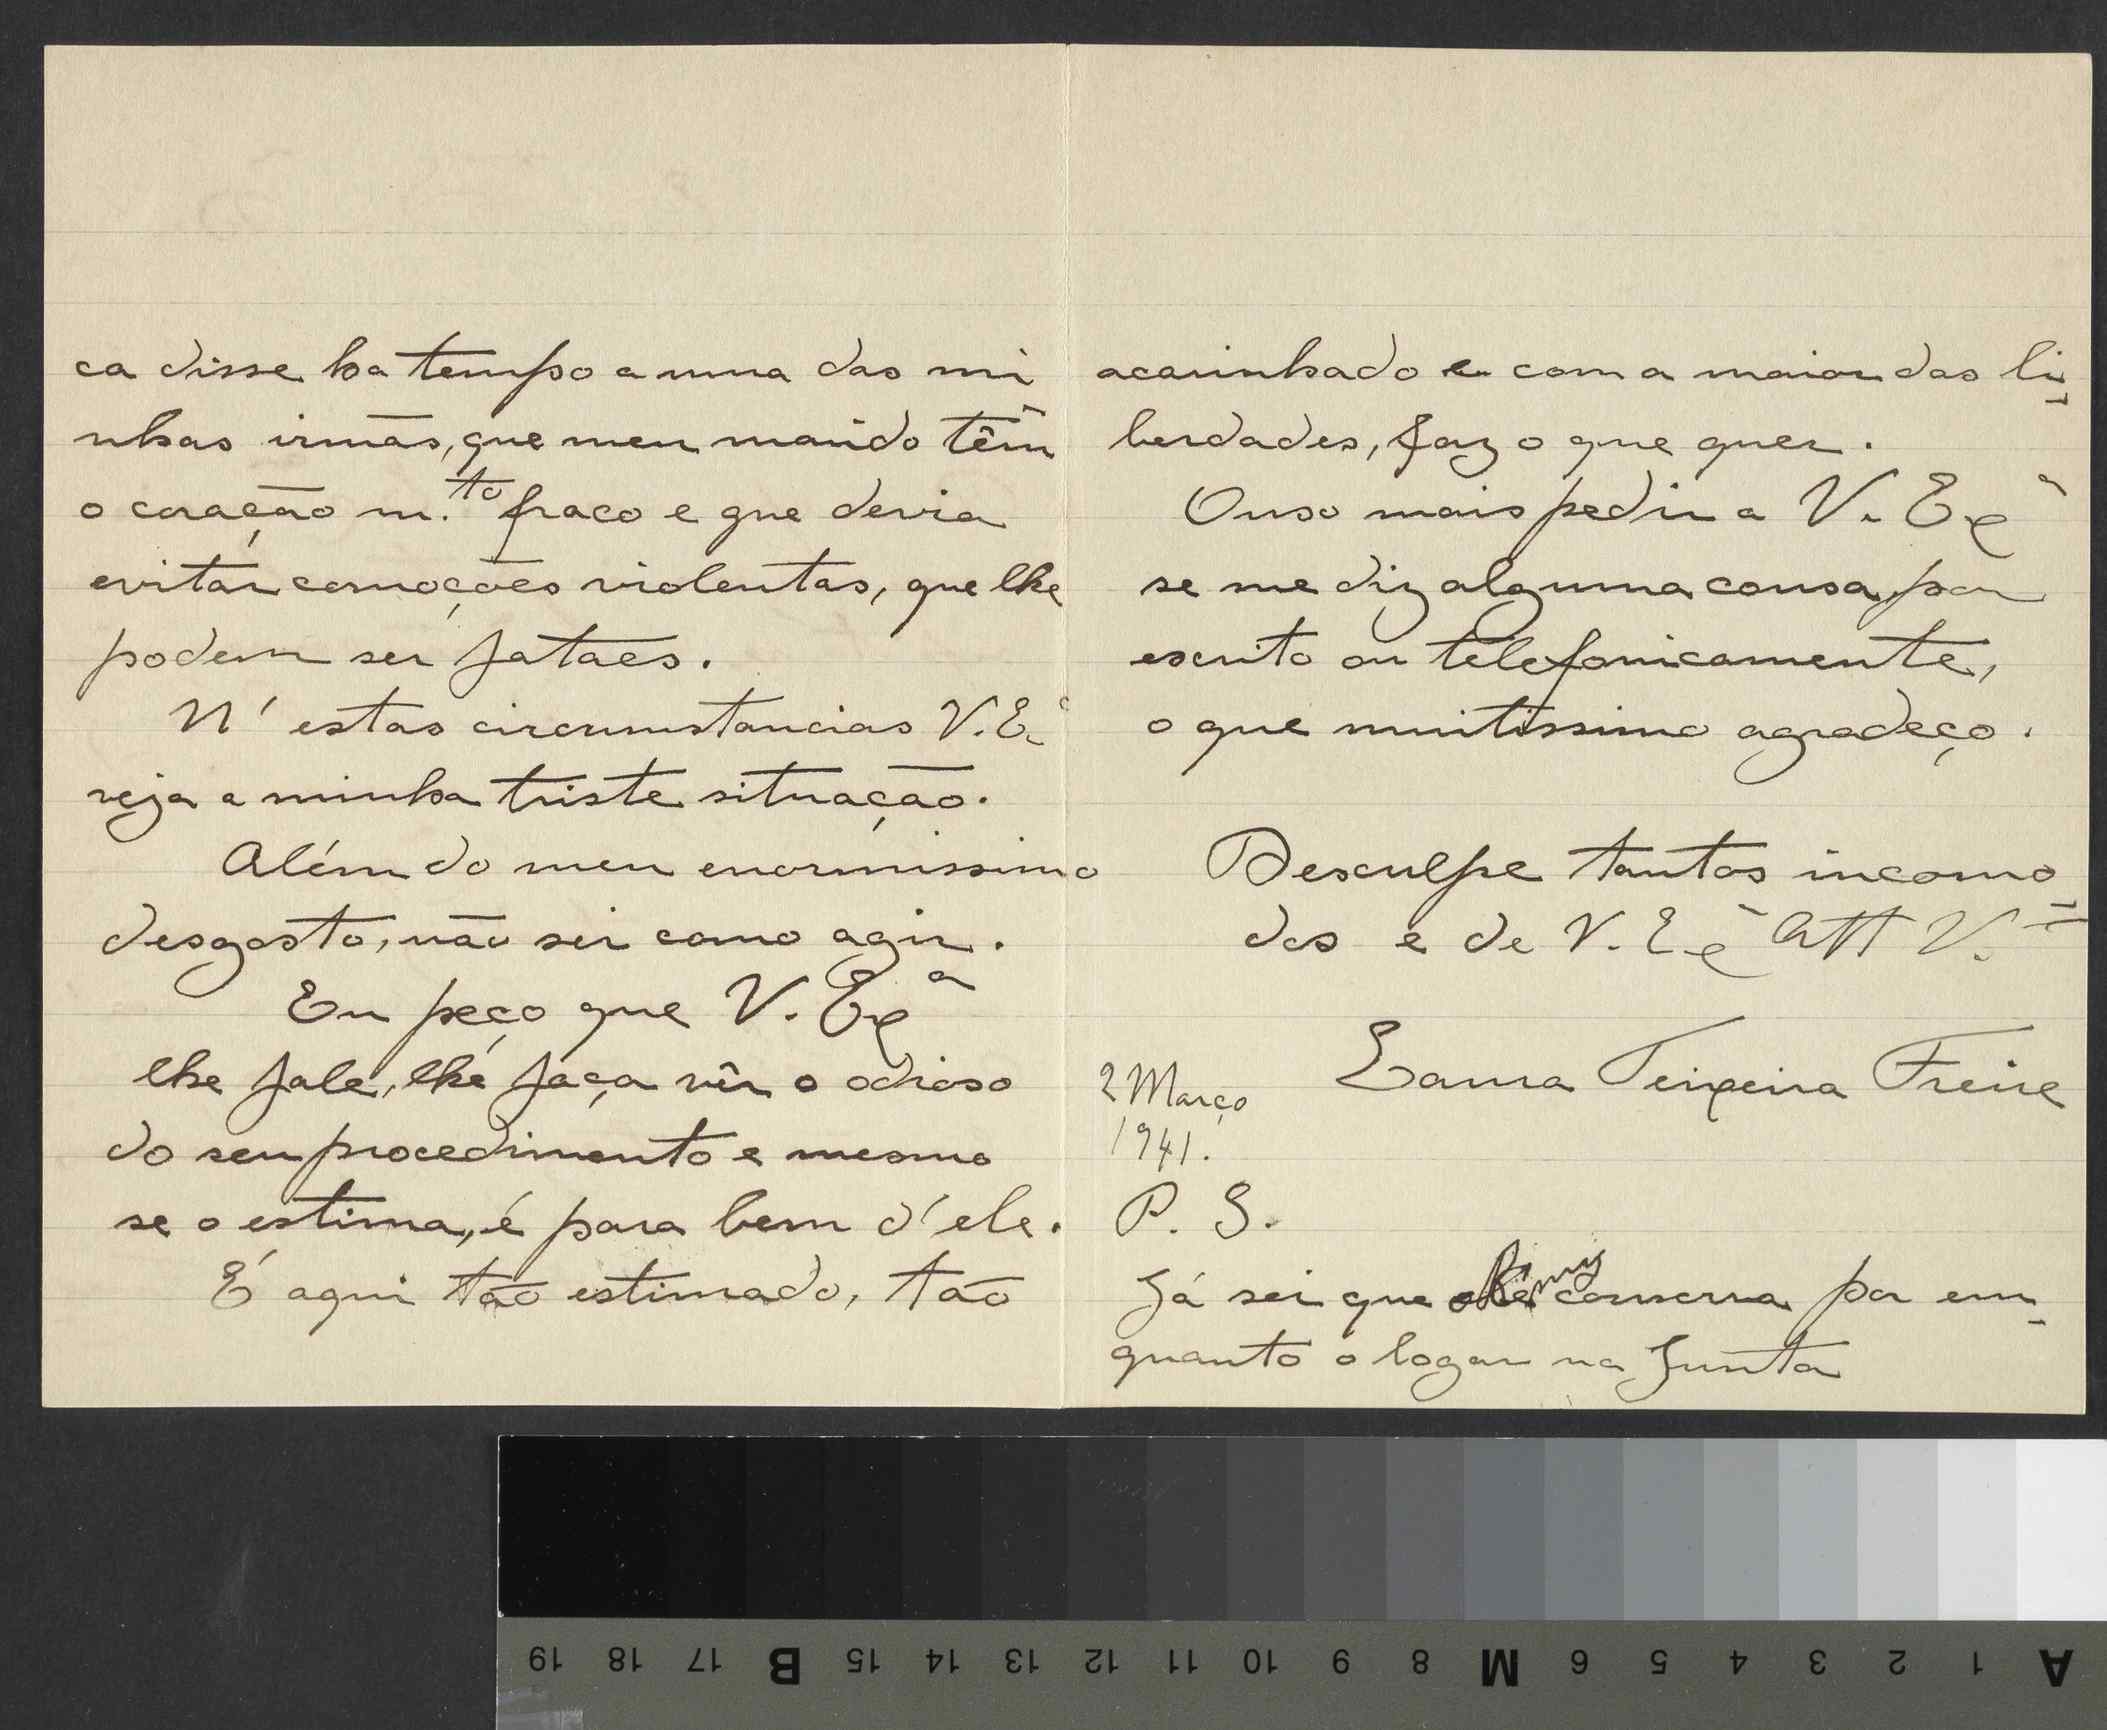 ca disse ha tempo a uma das mi
nhas irmãs, que meu marido têm
o coração m.to fraco e que devia
evitar comoções violentas, que lhe
podem ser fataes.
N'estas circumstancias V. Ea
veja a minha triste situação.
Além do meu enormissimo
desgosto, não sei como agir.
Eu peço que V. Exa
lhe fale, lhe faça vêr o odioso
do seu procedimento e mesmo
se o estima, é para bem d'ele.
É aqui tão estimado, tão
acarinhado e com a maior das li-
berdades, faz o que quer.
Ouso mais pedir a V. Exa
se me diz alguma cousa, por
escrito ou telefonicamente,
o que muitissimo agradeço.
Desculpe tantos incomo-
dos e de V. Exa Att V.
Laura Teixeira Freire
2 Março
1941.
P. S.
Já sei que conserva por em-
quanto o logar na Junta
A 1 2 3 4 5 6 M 8 9 10 11 12 13 14 15 B 17 18 19